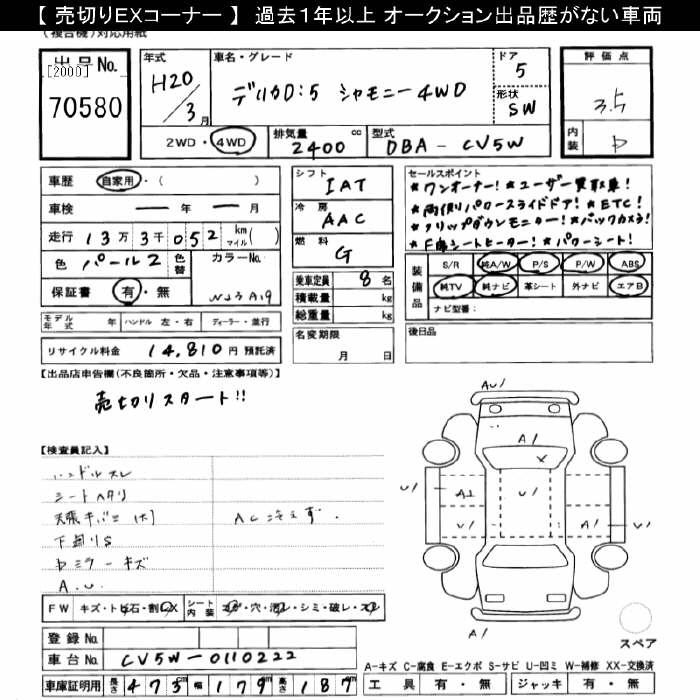 【 売切りEXコーナー 】 過去1年以上 オークション出品歴がない車両
(複合機)対応用紙
出品No.
[2000]
70580
年式
H20/3月
車名・グレード
デリカD:5 シャモニー 4WD
ドア
5
形状
SW
評価点
3.5
内装
D
2WD・4WD
排気量 2400 cc
型式 DBA - CV5W
車歴 自家用・( )
車検 ー 年 ー 月
走行 13万3千052 km マイル( )
色 パール2 色替 カラーNo. W43A19
保証書 有・無
モデル年式 年 ハンドル 左・右 ディーラー・並行
リサイクル料金 14,810 円 預託済
シフト
IAT
冷房
AAC
燃料
G
乗車定員 8 名
積載量 kg
総重量 kg
名変期限
月 日
セールスポイント
★ワンオーナー!★ユーザー買取車!
★両側パワースライドドア!★ETC!
★フリップダウンモニター!★バックカメラ!
★F席シートヒーター!★パワーシート!
装備品
S/R 純A/W P/S P/W ABS
純TV 純ナビ 革シート 外ナビ エアB
ナビ型番:
後日品
【出品店申告欄(不良箇所・欠品・注意事項等)】
売切りスタート!!
【検査員記入】
ハンドルスレ
シートヘタリ
天張キバミ(大) ACこえず.
下廻りS
Dミラーキズ
A.U
FW キズ・トビ石・割・X シート内装 コゲ・穴・汚レ・シミ・破レ・スレ
登録No.
車台No. CV5W-0110222
車庫証明用 長さ 473 cm 幅 179 cm 高さ 187 cm
AU1
A1
X
U1
A1
U1
U1
U1
A1
U1
A1
スペア
A-キズ C-腐食 E-エクボ S-サビ U-凹ミ W-補修 XX-交換済
工具 有・無 ジャッキ 有・無